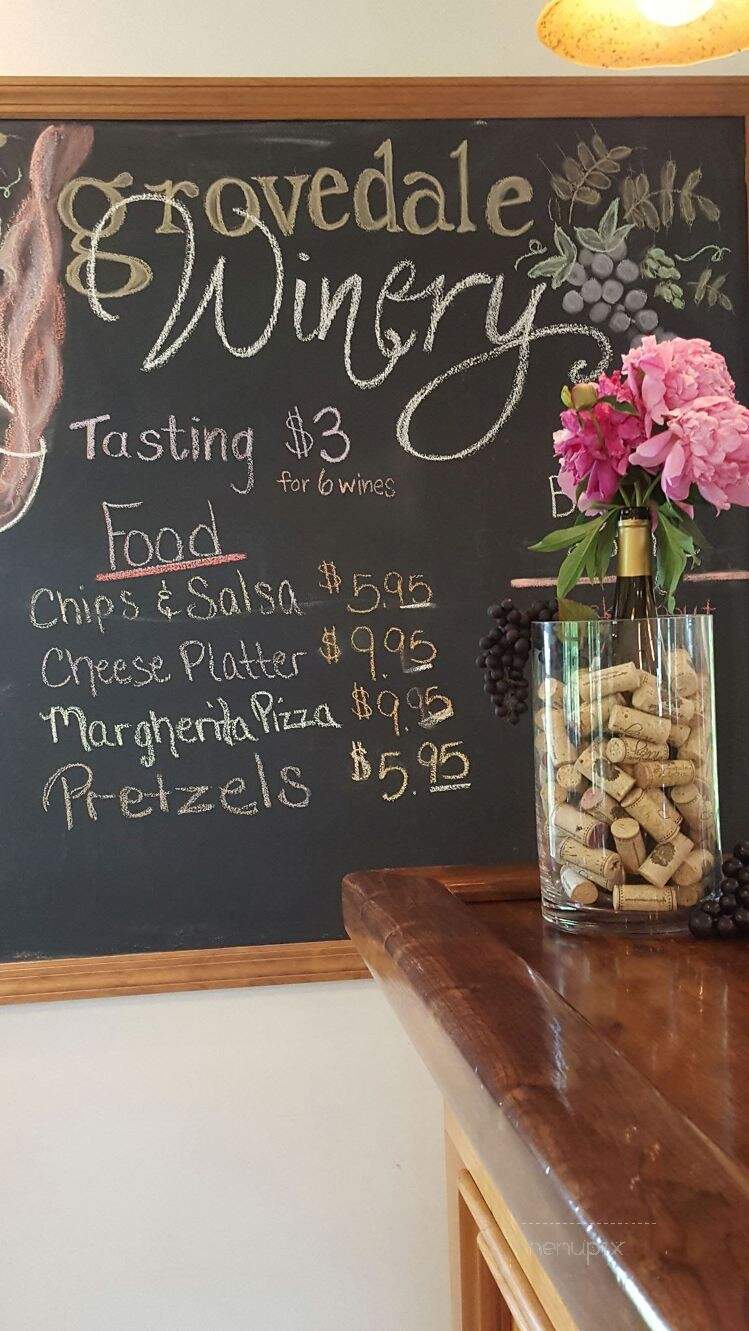 grovedale
Winery
Tasting $3
for 6 wines
Food
Chips & Salsa $5.95
Cheese Platter $9.95
Margherita Pizza $9.95
Pretzels $5.95
menupix